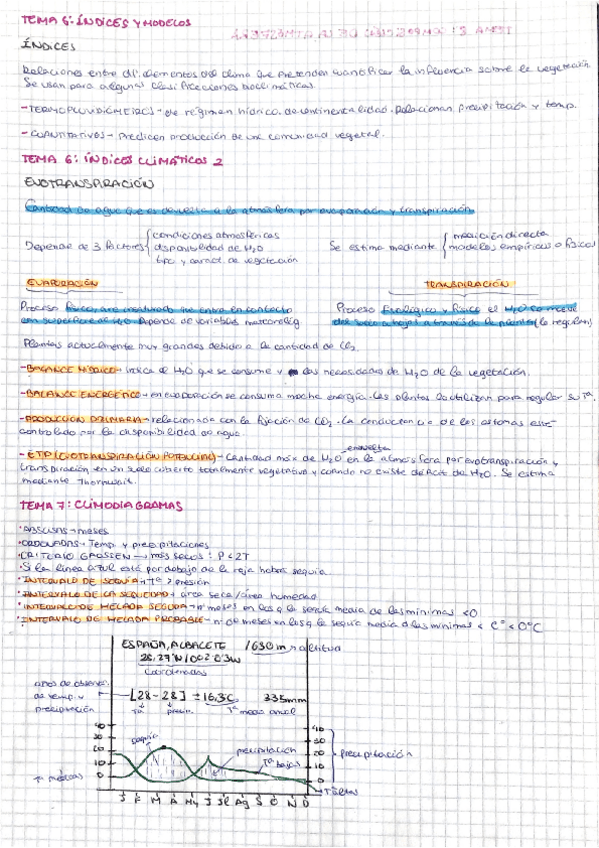 TEMA 6: ÍNDICES Y MODELOS
ÍNDICES
Relaciones entre dif. elementos del clima que pretenden cuantificar la influencia sobre la vegetación.
Se usan para algunas clasificaciones bioclimáticas.
-TERMOPLUVIOMÉTRICOS- de régimen hídrico, de continentalidad. Relacionan precipitación y temp.
-CUANTITATIVOS- Predicen producción de una comunidad vegetal.
TEMA 6: ÍNDICES CLIMÁTICOS 2
EVOTRANSPIRACIÓN
Cantidad de agua que es devuelta a la atmósfera por evaporación y transpiración.
Depende de 3 factores
condiciones atmosféricas
disponibilidad de H₂O
tipo y caract. de vegetación
Se estima mediante
medición directa
modelos empíricos o físicos
EVAPORACIÓN
Proceso físico, aire insaturado que entra en contacto
con superficie de H₂O. Depende de variables
TRANSPIRACIÓN
Proceso fisiológico y físico el H₂O se mueve
del suelo a hojas a través de la planta (lo regulan)
Plantas actualmente muy grandes debido a la cantidad de CO₂
-BALANCE HÍDRICO- indica el H₂O que se consume y las necesidades de H₂O de la vegetación.
-BALANCE ENERGÉTICO- en evaporación se consume mucha energía. Las plantas la utilizan para regular su Tª.
-PRODUCCIÓN PRIMARIA- relacionada con la fijación de CO₂. La conductancia de los estomas está
controlado por la disponibilidad de agua.
-ETP (EVOTRANSPIRACIÓN POTENCIAL)- Cantidad máx de H₂O en la atmósfera por evotranspiración y
devuelta
transpiración en un suelo cubierto totalmente vegetativo y cuando no existe déficit de H₂O. Se estima
mediante Thornwait.
TEMA 7: CLIMODIAGRAMAS
·ABSCISAS→meses
·ORDENADAS→Temp. y precipitaciones
·CRITERIO GAUSSEN → más secos: P<2T
·Si la línea azul está por debajo de la roja habrá sequía
·INTERVALO DE SEQUÍA: Tª > presión
·INTERVALO DE LA SEQUEDAD→ área seca/área humedad
·INTERVALO DE HELADA SEGURA→ nº meses en los q la sequía media de las mínimas <0
·INTERVALO DE HELADA PROBABLE→ nº de meses en los q la sequía media d las mínimas < Cº < 0ºC
ESPAÑA, ALBACETE 1630m → altitud
28,27'N/002 03W
Coordenadas
años de observ.
de temp. y
precipitación
[28-28] ±16,3C 335mm
Tª precip. Tª media anual
40 30 20 10 0
sequía
precipitación
Tª bajas
Tª medias
40 30 20 10 0
precipitación
J F M A My J Jl Ag S O N D